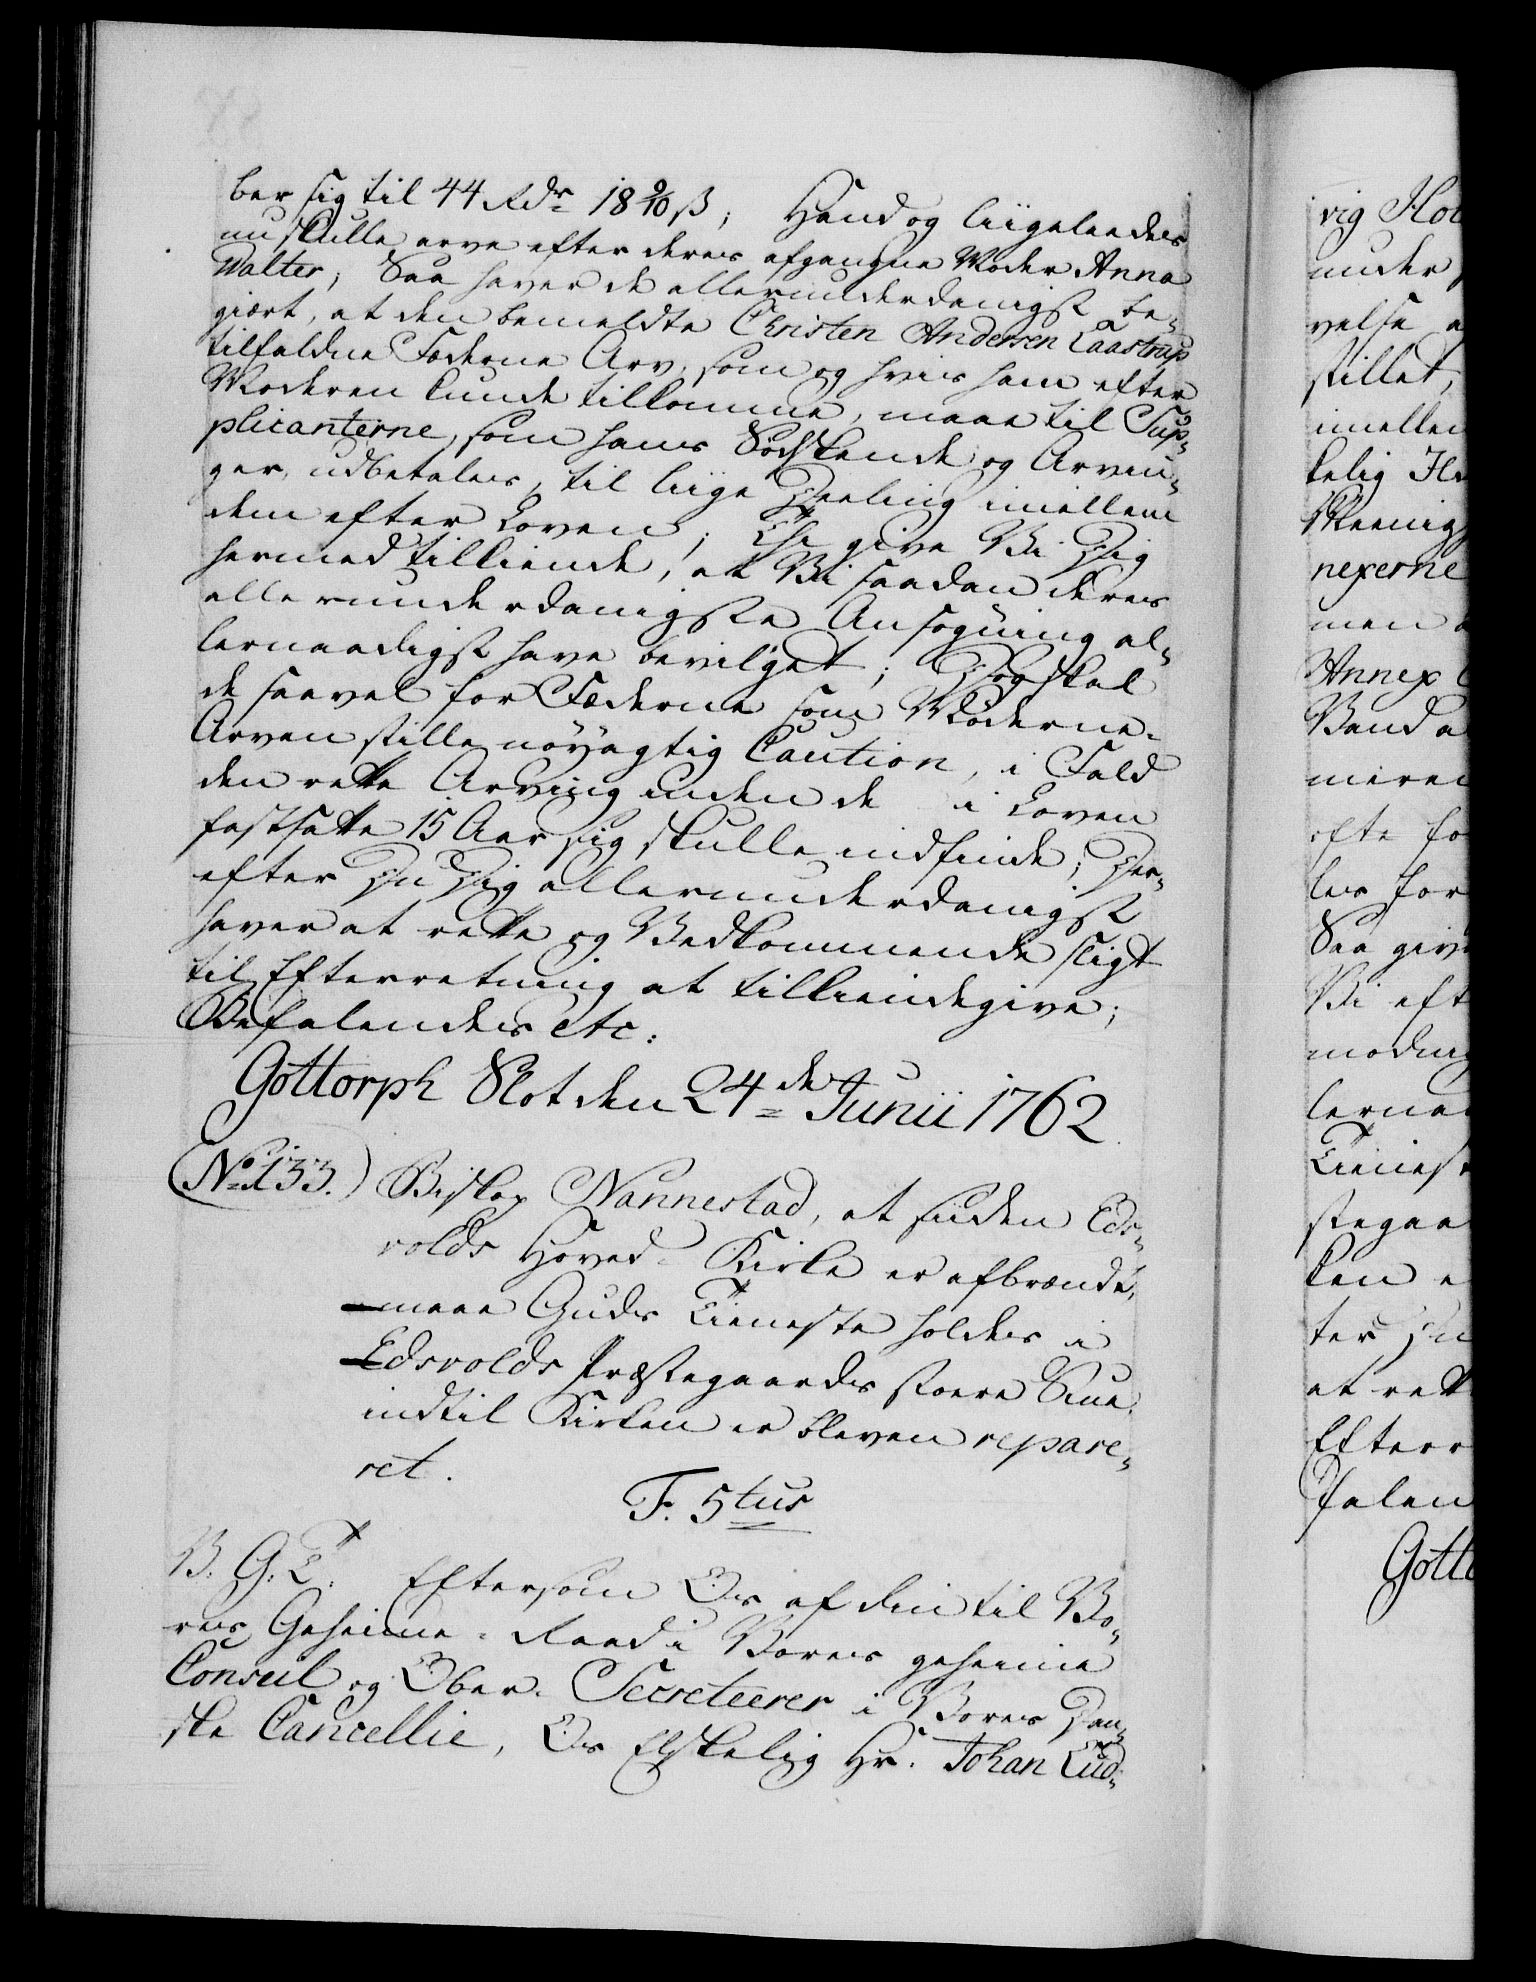 ber sig til 44 Rdr 18 9/10 ß; Hand og liigeleedes
nu skulle arve efter deres afgangne Moder Anna
Walter; Saa haver de allerunderdanigst be-
giært, at den bemeldte Christen Andersen Laastrup
tilfaldne Fæderne Arv, som og hvis ham efter
Moderen kunde tilkomme, maae til Sup-
plicanterne, som hans Sødskende og Arvin-
ger, udbetales, til liige Deeling imellem
dem efter Loven; Thi give Vi Dig
hermed tilkiende, at Vi saadan deres
allerunderdanigste Ansøgning al-
lernaadigst have bevilget; Dog skal
de saavel for Fæderne som Møderne-
Arven stille nøyagtig Caution, i Fald
den rette Arving inden de i Loven
fastsatte 15 Aar sig skulle indfinde; Der-
efter Du Dig allerunderdanigst
haver at rette og Vedkommende sligt
til Efterretning at tilkiendegive;
Befalendes etc:
Gottorph Slot den 24de Junii 1762.
(No. 133.) Biskop Nannestad, at siiden Eds-
volds Hoved-Kirke er afbrændt,
maae Guds Tieneste holdes i
Edsvolds Præstegaards store Stue
indtil Kirken er bleven repare-
ret.
F. 5tus
V. G. T. Eftersom Os af din til Vo-
res Geheime-Raad i Vores geheime
Conseil og Ober-Secreteerer i Vores Dan-
ske Cancellie, Os Elskelig Hr. Johan Lud-
vig Hol
under
velse
stillet,
imellem
kelig
nexerne
men
Annex
Vand
efte
les for
Saa give
Vi eft
lerna
Tienest
ken
ter Du
at rett
Efterr
falen
Gotto